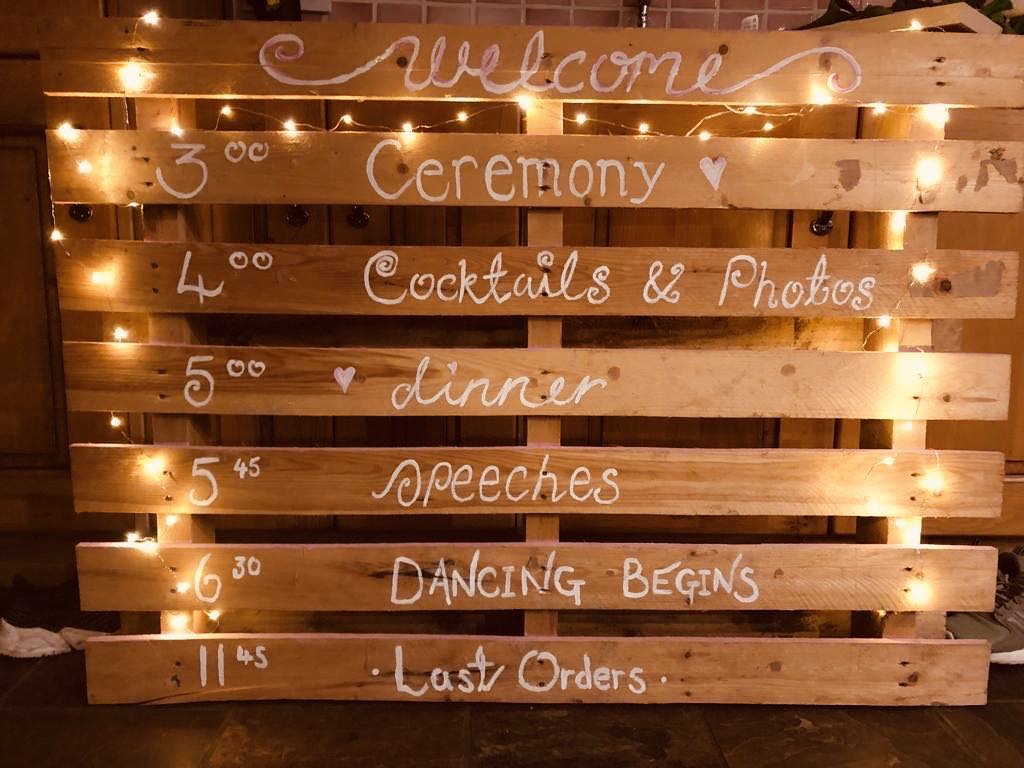 welcome
3 00 Ceremony
4 00 Cocktails & Photos
5 00 dinner
5 45 speeches
6 30 DANCING BEGINS
11 45 · Last Orders ·